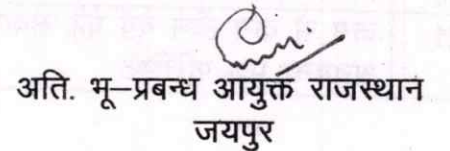 अति. भू–प्रबन्ध आयुक्त राजस्थान
जयपुर